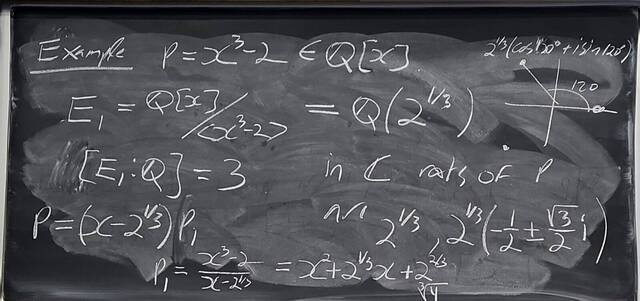 Example P = x³-2 ∈ Q[x] 2^{1/3}(cos120°+isin120°)
120
E₁ = Q[x]/<x³-2> = Q(2^{1/3})
[E₁:Q] = 3 in C roots of P
P = (x-2^{1/3})P₁ 2^{1/3}, 2^{1/3}(-1/2 ± √3/2 i)
P₁ = x³-2/x-2^{1/3} = x²+2^{1/3}x+2^{2/3}
∛4